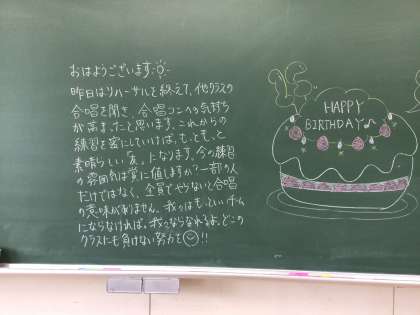 おはようございます
昨日はリハーサルを終えて、他クラスの
合唱を聞き、合唱コンへの気持ち
が高まったと思います。これからの
練習を密にしていけば、もっともっと
素晴らしい友。になります。今の練習
の雰囲気は賞に値しますか?一部の人
だけではなく、全員でやらないと合唱
の意味がありません。我々はもっといいチーム
にならなければ。我々ならなれるよ。どこの
クラスにも負けない努力を!!
HAPPY
BIRTHDAY♪